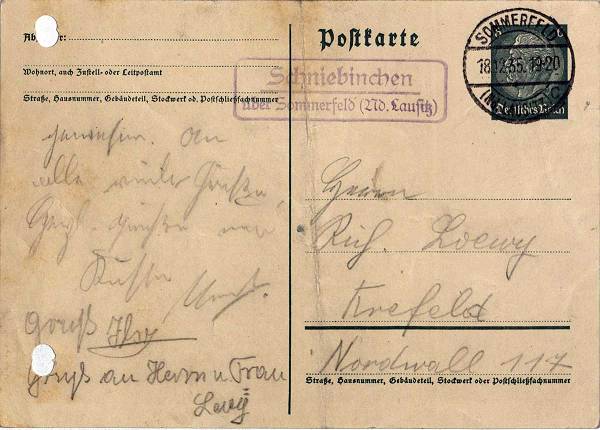 Postkarte
SOMMERFELD
18.12.35.19-20
Deutsches Reich
Wohnort, auch Zustell- oder Leitpostamt
Schniebinchen
über Sommerfeld (Nd. Lausitz)
Straße, Hausnummer, Gebäudeteil, Stockwerk od. Postschließfachnummer
gewesen. An
alle viele Grüße
Küsse
Gruß
Gruß an Herrn u Frau
Levy
Herrn
Rich. Loewy
Krefeld
Nordwall 117
Straße, Hausnummer, Gebäudeteil, Stockwerk oder Postschließfachnummer